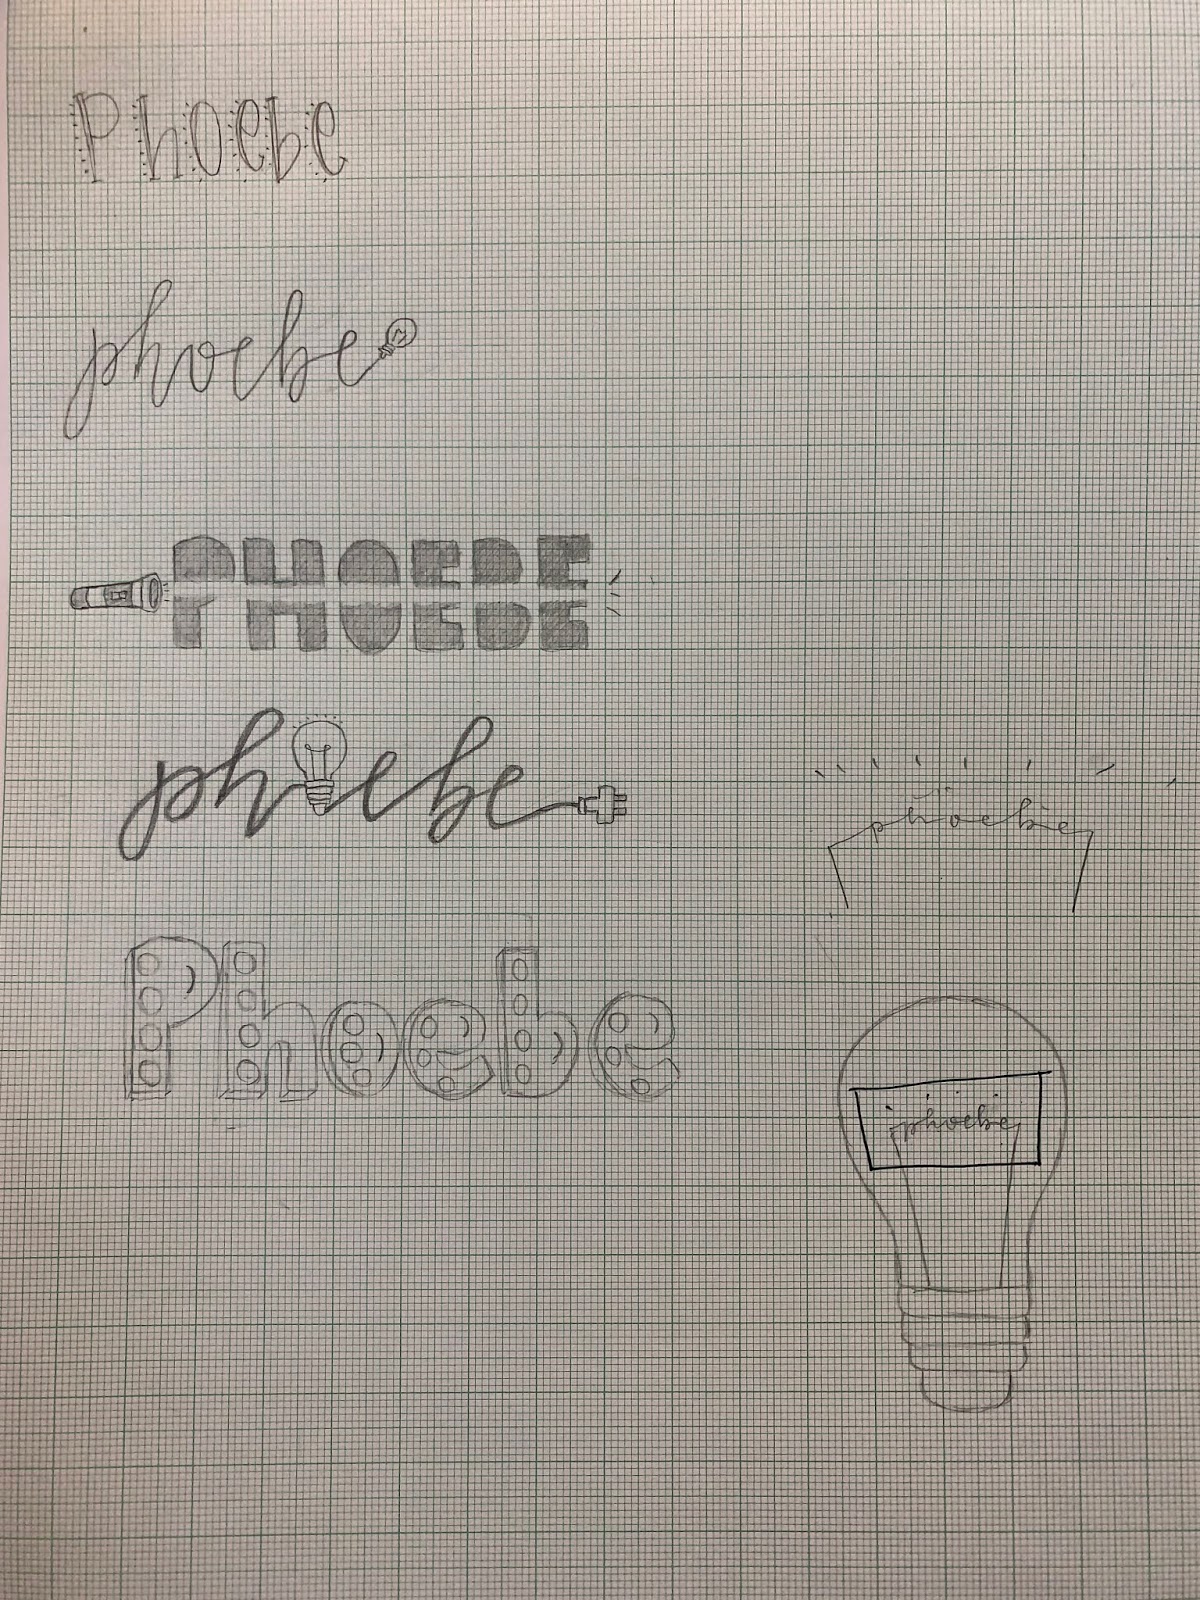 Phoebe
phoebe
PHOEBE
phoebe
phoebe
Phoebe
phoebe